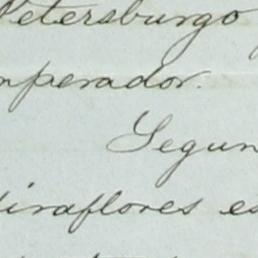 Petersburgo
mperador.
Segun
iraflores es